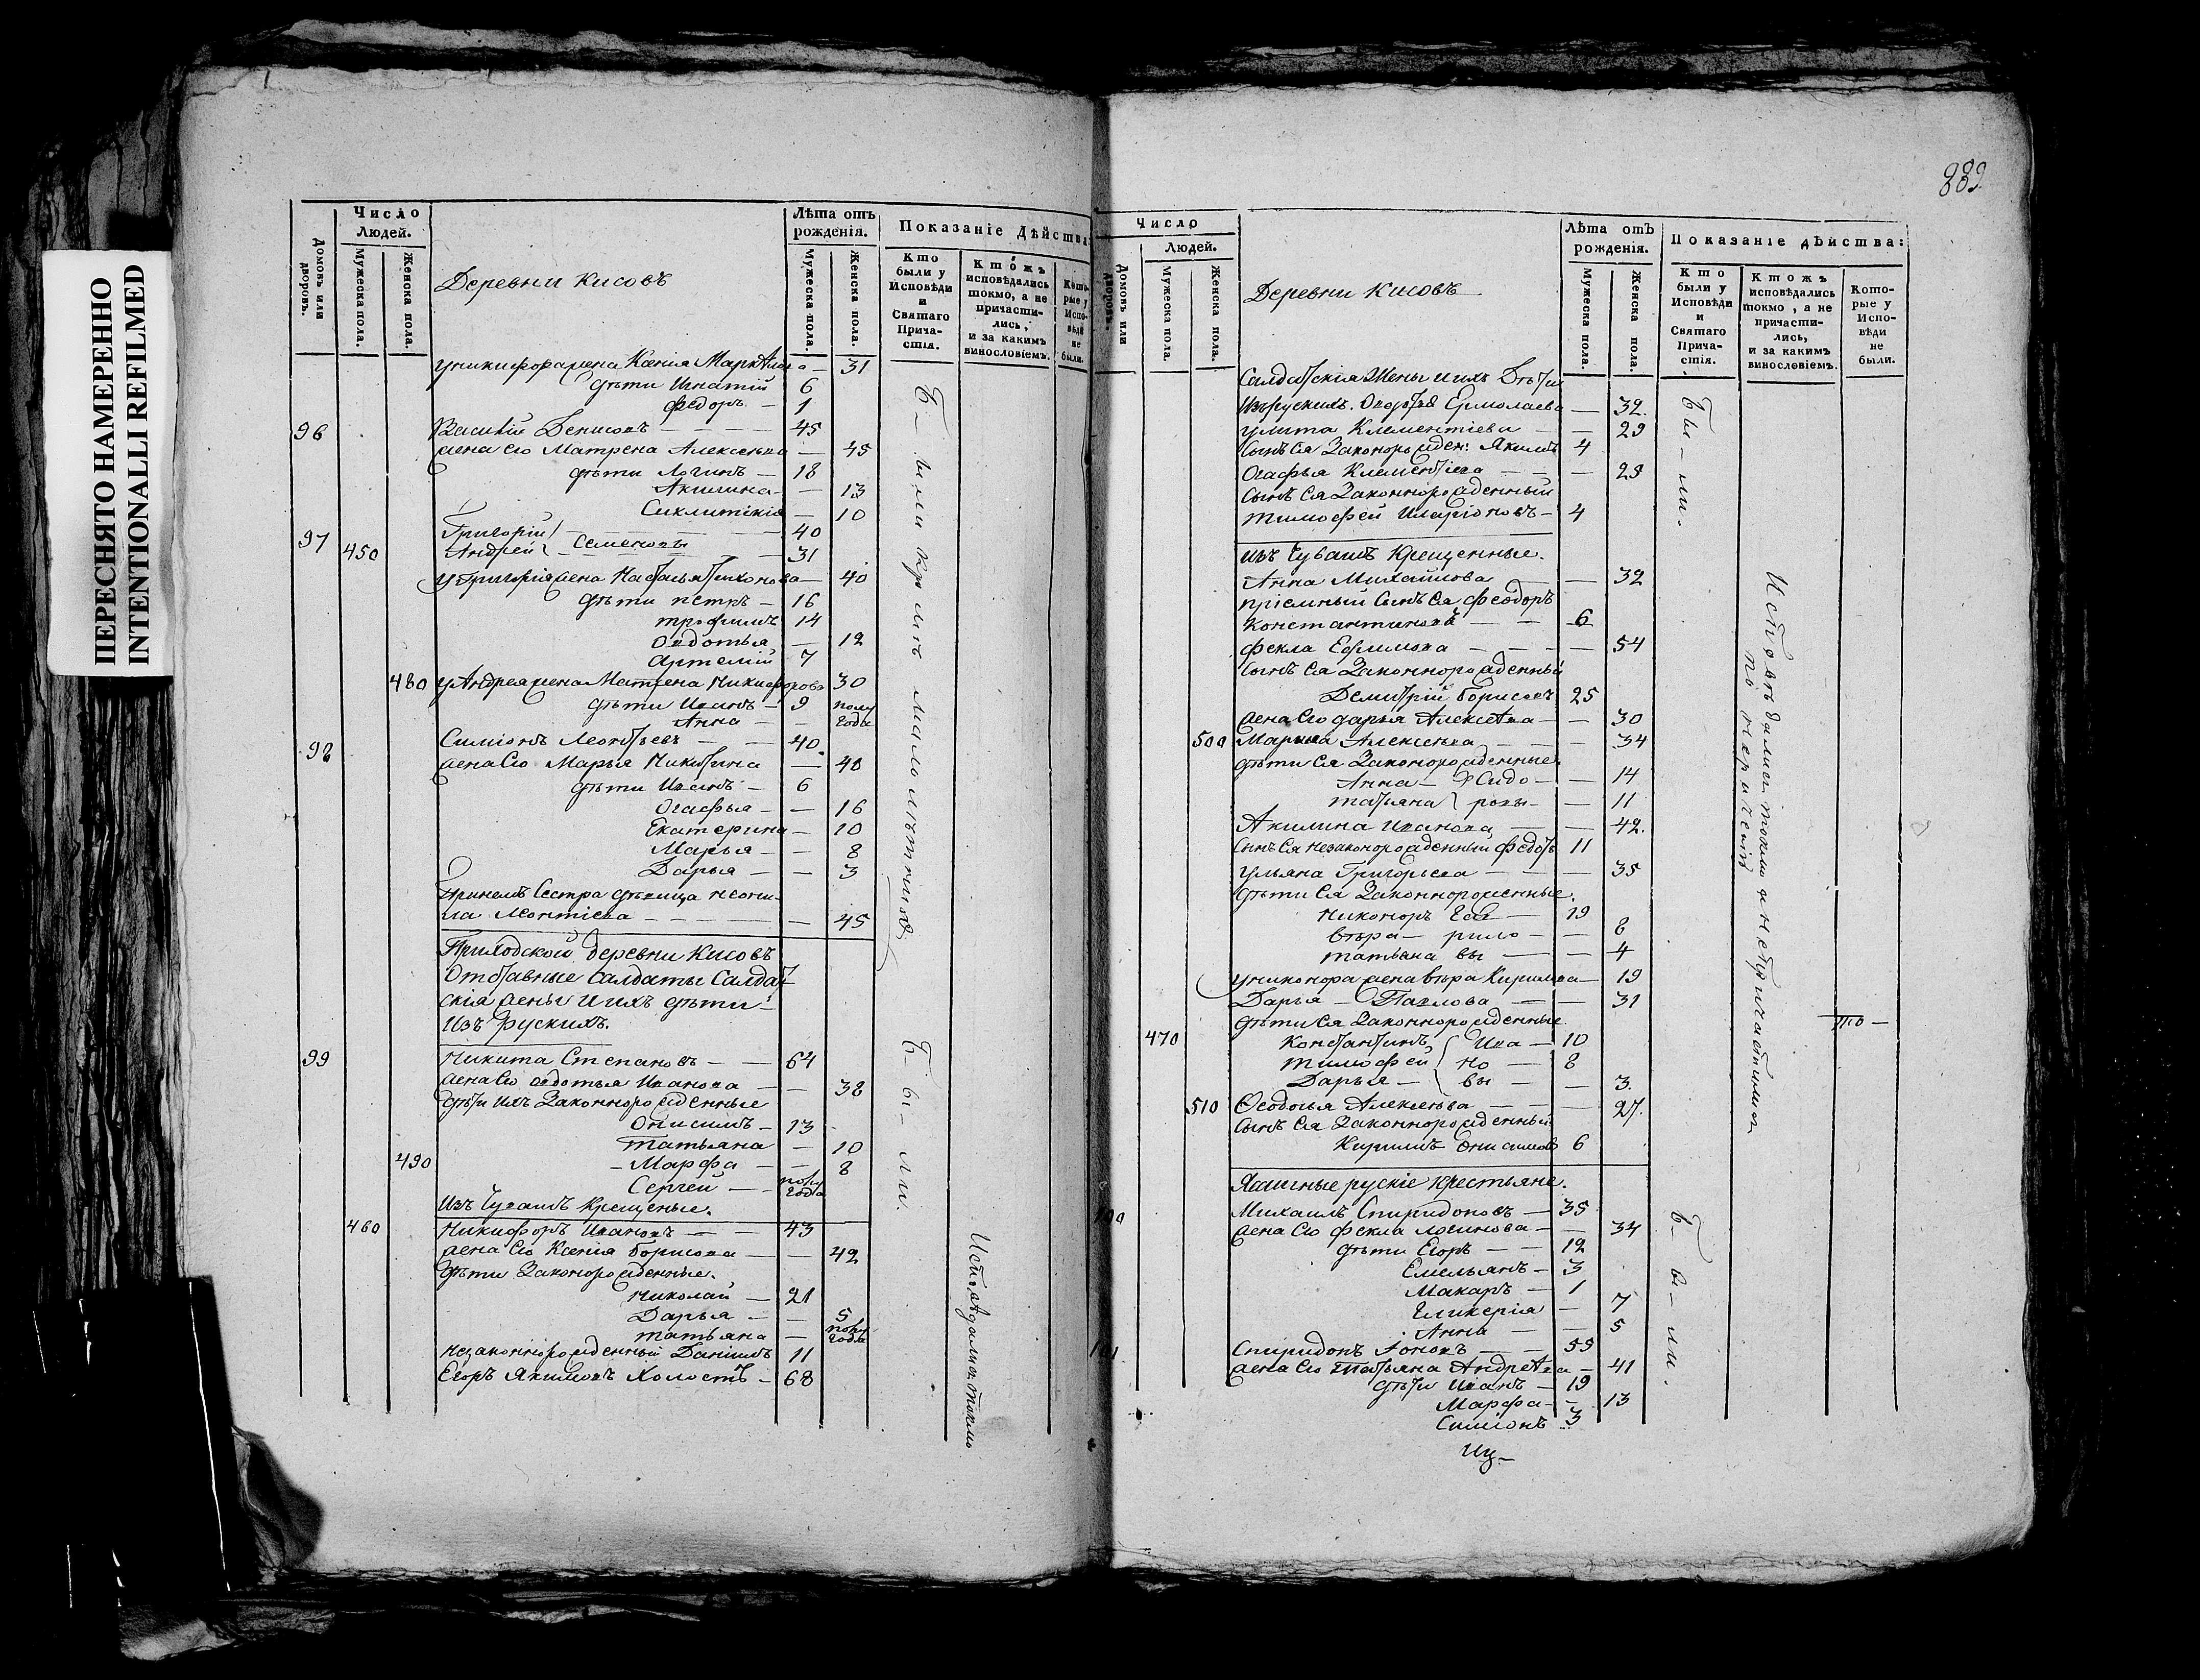 ПЕРЕСНЯТО НАМЕРЕННО
INTENTIONALLI REFILMED
Число
Людей.
Домовъ или дворовъ.
Мужеска пола.
Женска пола.
Деревни Кисовъ
Лѣта отъ
рожденія.
Мужеска пола.
Женска пола.
Показаніе Дѣйства:
Кто
были у
Исповѣди
и
Святаго
Прича-
стія.
Ктожъ
исповѣдались
токмо, а не
причасти-
лись,
и за какимъ
винословіемъ.
Кото-
рые у
Испо-
вѣди
не
были.
у Никифора жена Ксенія 31
дѣти Игнатій 6
Федоръ — 1
96 Василій Денисовъ — 45
жена его Матрена Алексѣева — 45
дѣти Логинъ — 18
Акилина — 13
Сиклитикія — 10
97 Григорій 40
450 Андрей Семеновы 31
у Григорія жена Настасья Тихонова — 40
дѣти Петръ — 16
Трофимъ 14
Овдотья — 12
Артемій 7
480 у Андрея жена Матрена Никифорова 30
дѣти Иванъ — 9
Анна — полу года
98 Симіонъ Леонтьевъ — 40
жена его Марья Никитина — 40
дѣти Иванъ — 6
Огафья — 16
Екатерина — 10
Марья — 8
Дарья — 3
сестра дѣвица Неони-
ла Леонтіева — 45
Приходской деревни Кисовъ
Отставные Салдаты Салдат
скія жены и ихъ дѣти
Изъ рускихъ.
99 Никита Степановъ — 64
жена его Овдотья Иванова — 38
дѣти ихъ законнорожденные
Онисимъ — 13
Татьяна — 10
490 Марфа — 8
Сергей — полу года
Изъ Чувашъ крещеные.
460 Никифоръ Ивановъ — 43
жена его Ксенія Борисова — 42
дѣти законорожденные.
Николай — 21
Дарья — 5
Татьяна — полу года
незаконнорожденный Даніилъ 11
Егоръ Якимовъ холостъ — 68
Бы-ли кромѣ малолѣтнихъ
Б-ы-ли.
Исповѣдались токмо
889
Число
Людей.
Домовъ или дворовъ.
Мужеска пола.
Женска пола.
Деревни Кисовъ
Лѣта отъ
рожденія.
Мужеска пола.
Женска пола.
Показаніе дѣйства:
Кто
были у
Исповѣди
и
Святаго
Прича-
стія.
Ктожъ
исповѣдались
токмо, а не
причасти-
лись,
и за какимъ
винословіемъ.
Кото-
рые у
Испо-
вѣди
не
были.
Салдатскія Жены и ихъ Дѣти
Изъ рускихъ. Ермолаева — 32.
Улита Клементіева — 29
сынъ ея законорожден: Якимъ 4
Огафья Клементіева — 29
сынъ ея законнорожденный
Тимофей Иларіоновъ — 4
изъ Чувашъ крещенные.
Анна Михайлова — 32
пріемный сынъ ея Феодоръ
Константиновъ — 6
Фекла Ефимова — 54
сынъ ея законнорожденный
Демитрій Борисовъ 25
жена его Дарья Алексѣева — 30
500 Марина Алексѣева — 34
дѣти ея законорожденные.
Анна — Сидо — 14
Татьяна ровы — 11
Акилина Иванова — 42.
сынъ ея незаконорожденный Федотъ 11
Ульяна Григорьева — 35
дѣти ея законнорожденные.
Никоноръ Гав — 19
Вѣра — рило — 6
Татьяна вы — 4
у Никонора жена Вѣра Кирилова — 19
Дарія — Павлова — 31
дѣти ея законнорожденные
470 Константинъ Ива — 10
Тимофей но — 8
Дарья — вы — 3
510 Феодосья Алексѣева — 27.
сынъ ея законнорожденный
Кирилъ Онисимовъ 6
Ясашные рускіе крестьяне.
100 Михаилъ Спиридоновъ — 35
жена его Фекла Логинова — 34
дѣти Егоръ — 12
Емельянъ — 3
Макаръ — 1
Гликерія — 7
Анна — 5
Спиридонъ — 59
жена его Татьяна Андреѣва — 41
дѣти Иванъ — 19
Марфа — 13
Симіонъ 3
Бы-ли.
Исповѣдались токмо а не причастились
Б-ы-ли.